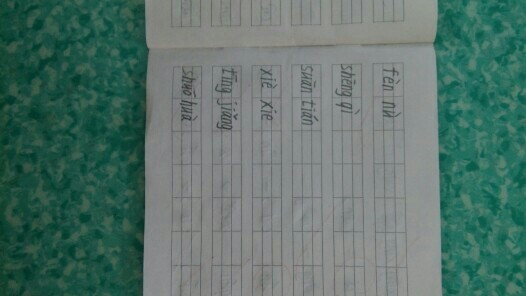 fèn nù
shēng qì
suān tián
xiè xie
tīng jiǎng
shuō huà